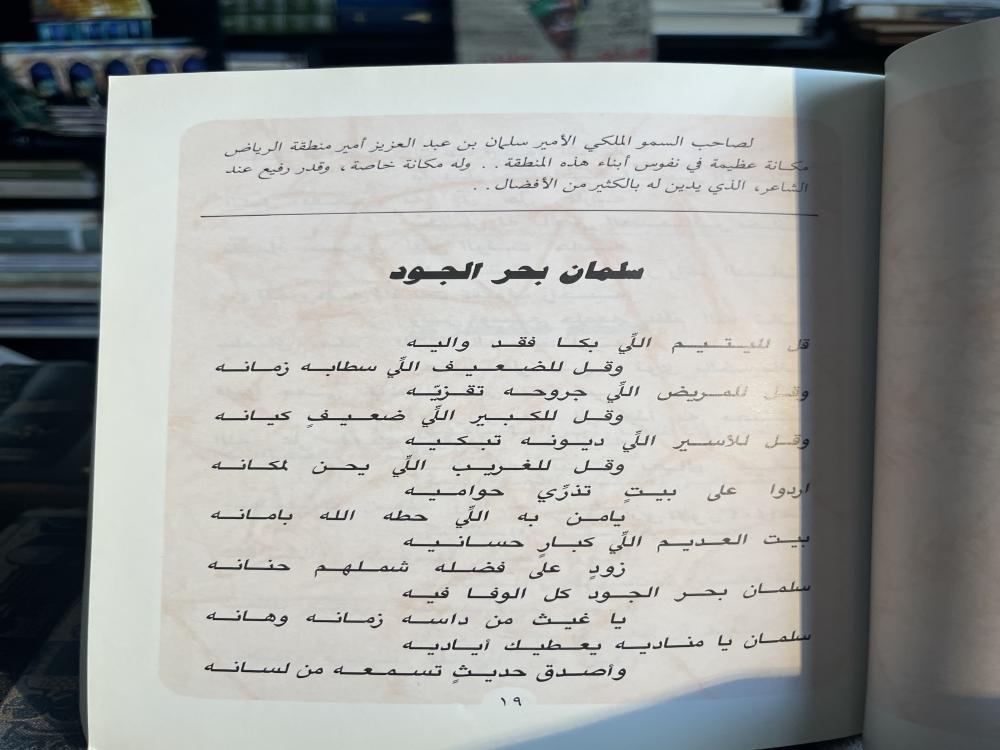 لصاحب السمو الملكي الأمير سلمان بن عبد العزيز أمير منطقة الرياض
مكانة عظيمة في نفوس أبناء هذه المنطقة . . وله مكانة خاصة ، وقدر رفيع عند
الشاعر، الذي يدين له بالكثير من الأفضال . .
سلمان بحر الجود
قل لليتيم اللّي بكا فقد واليه
وقل للضعيف اللّي سطابه زمانه
وقل للمريض اللّي جروحه تقزيّه
وقل للكبير اللّي ضعيفٍ كيانه
وقل للأسير اللّي ديونه تبكيه
وقل للغريب اللّي يحن لمكانه
اردوا على بيتٍ تذرّي حواميه
يامن به اللّي حطه الله بامانه
بيت العديم اللّي كبارٍ حسانيه
زودٍ على فضله شملهم حنانه
سلمان بحر الجود كل الوفا فيه
يا غيث من داسه زمانه وهانه
سلمان يا مناديه يعطيك أياديه
وأصدق حديثٍ تسمعه من لسانه
١٩